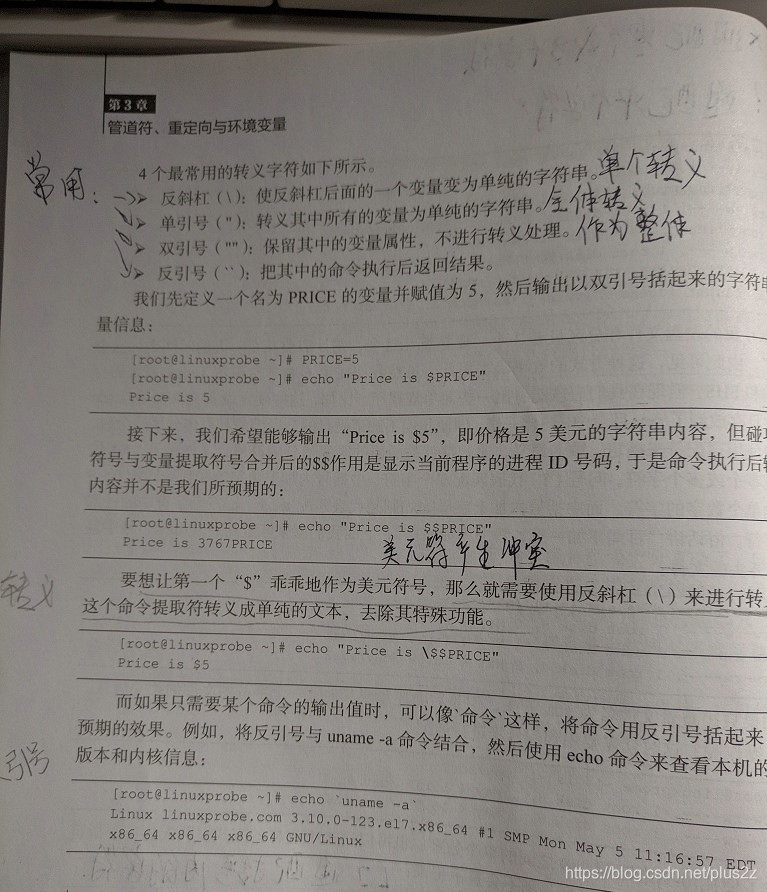 第3章
管道符、重定向与环境变量
4个最常用的转义字符如下所示。
常用:
反斜杠(\):使反斜杠后面的一个变量变为单纯的字符串。单个转义
单引号(''):转义其中所有的变量为单纯的字符串。全体转义
双引号(""):保留其中的变量属性,不进行转义处理。作为整体
反引号(``):把其中的命令执行后返回结果。
我们先定义一个名为 PRICE 的变量并赋值为 5,然后输出以双引号括起来的字符串
量信息:
[root@linuxprobe ~]# PRICE=5
[root@linuxprobe ~]# echo "Price is $PRICE"
Price is 5
接下来,我们希望能够输出“Price is $5”,即价格是 5 美元的字符串内容,但碰
符号与变量提取符号合并后的$$作用是显示当前程序的进程 ID 号码,于是命令执行后输
内容并不是我们所预期的:
[root@linuxprobe ~]# echo "Price is $$PRICE"
Price is 3767PRICE
美元符产生冲突
要想让第一个“$”乖乖地作为美元符号,那么就需要使用反斜杠(\)来进行转
转义
这个命令提取符转义成单纯的文本,去除其特殊功能。
[root@linuxprobe ~]# echo "Price is \$$PRICE"
Price is $5
而如果只需要某个命令的输出值时,可以像`命令`这样,将命令用反引号括起来
预期的效果。例如,将反引号与 uname -a 命令结合,然后使用 echo 命令来查看本机的
引号
版本和内核信息:
[root@linuxprobe ~]# echo `uname -a`
Linux linuxprobe.com 3.10.0-123.el7.x86_64 #1 SMP Mon May 5 11:16:57 EDT
x86_64 x86_64 x86_64 GNU/Linux
https://blog.csdn.net/plus2z